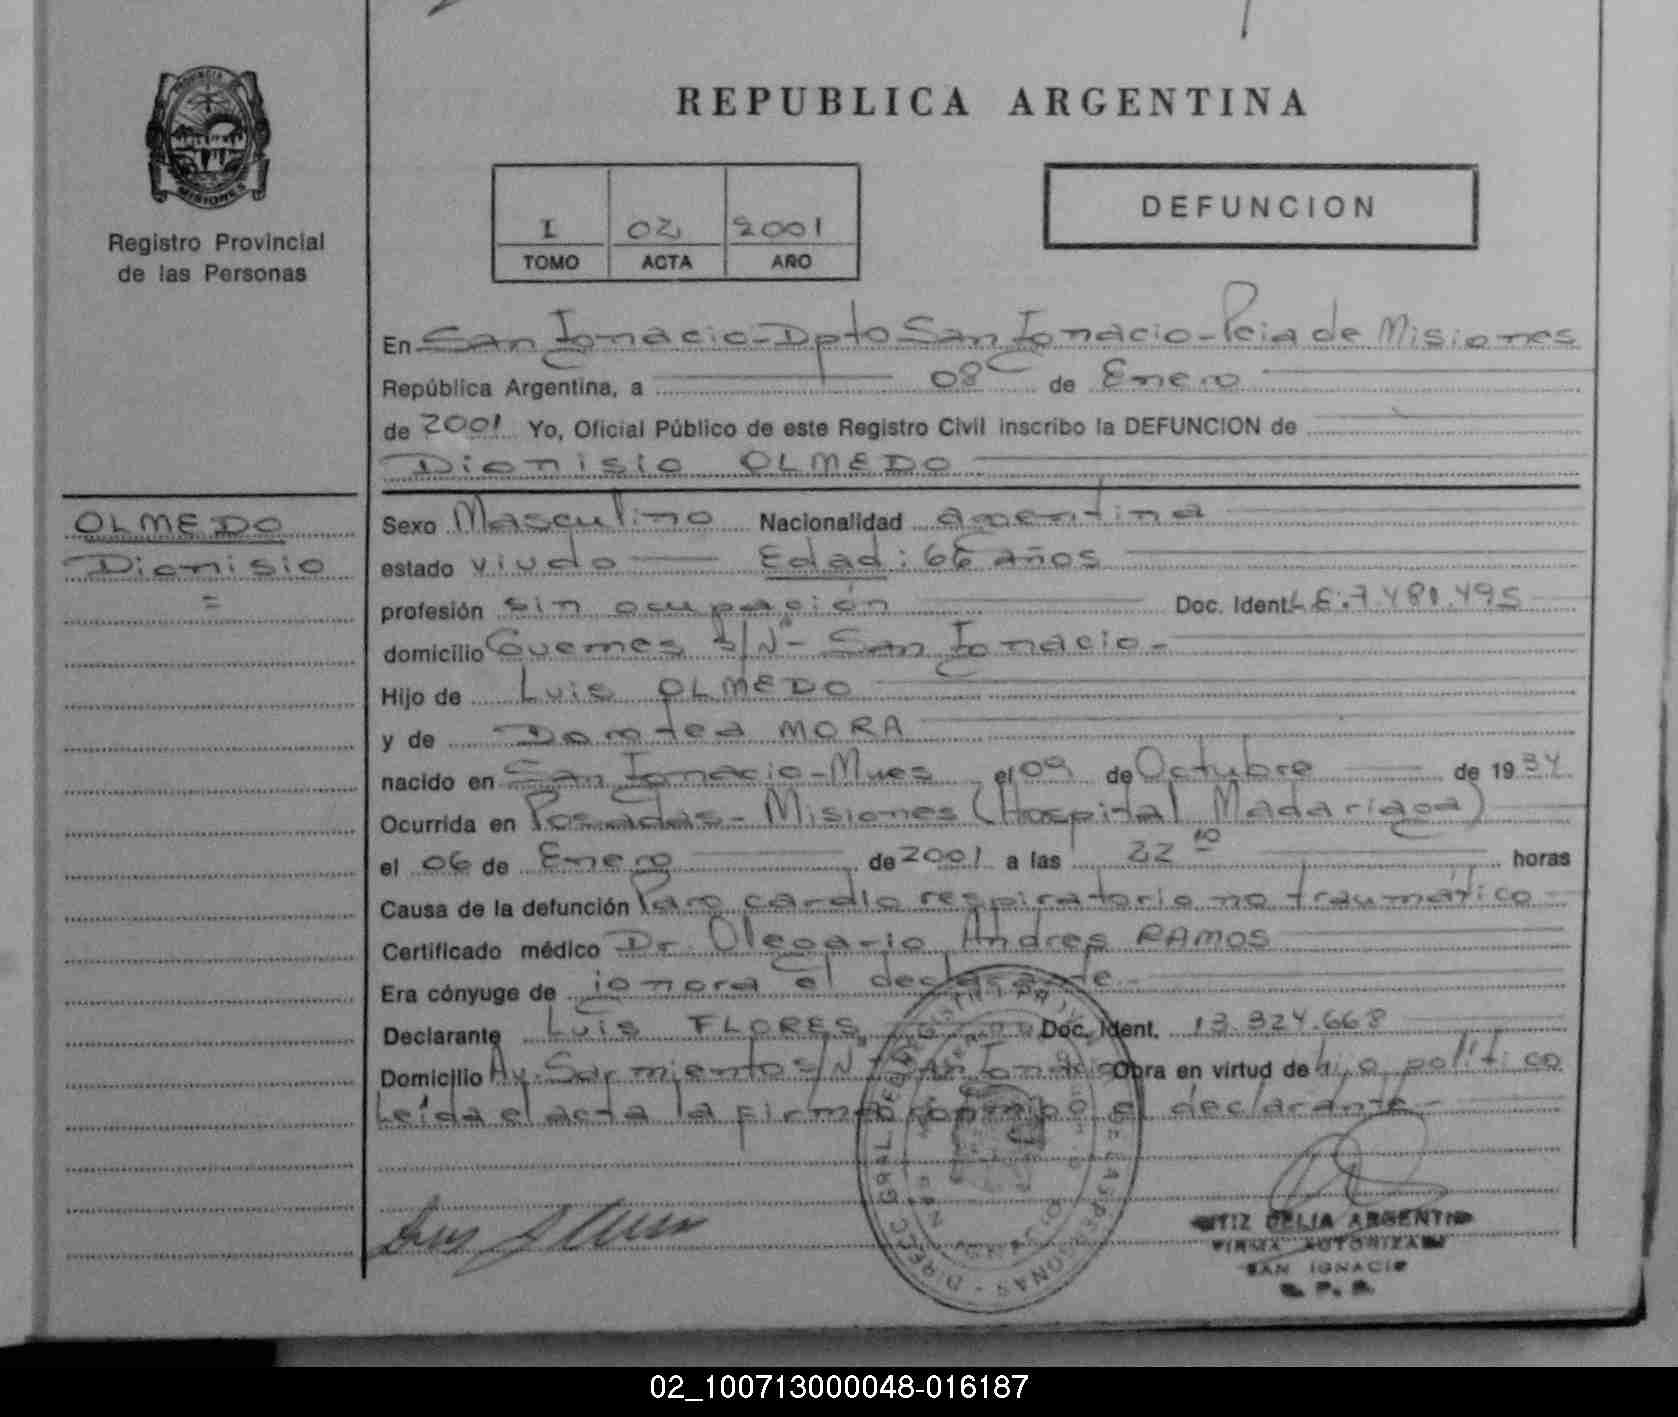 REPUBLICA ARGENTINA
PROVINCIA DE
MISIONES
Registro Provincial
de las Personas
I 02 2001
TOMO ACTA AÑO
DEFUNCION
En San Ignacio-Dpto San Ignacio-Pcia de Misiones
República Argentina, a 08 de Enero
de 2001 Yo, Oficial Público de este Registro Civil inscribo la DEFUNCION de
Dionisio OLMEDO
OLMEDO
Dionisio
Sexo Masculino Nacionalidad argentina
estado viudo Edad: 66 años
profesión sin ocupación Doc. Ident. L.E: 7.481.495
domicilio Guemes S/Nº- San Ignacio-
Hijo de Luis OLMEDO
y de Dorotea MORA
nacido en San Ignacio-Mnes el 09 de Octubre de 1934
Ocurrida en Posadas- Misiones (Hospital Madariaga)
el 06 de Enero de 2001 a las 22 10 horas
Causa de la defunción Paro cardio respiratorio no traumático
Certificado médico Dr. Olegario Andres RAMOS
Era cónyuge de ignora el declarante-
Declarante Luis FLORES Doc. Ident. 13.324.668
Domicilio Av. Sarmiento S/Nº San Ignacio Obra en virtud de hijo político
Leída el acta la firma conmigo el declarante-
DELIA ARGENTIN
FIRMA AUTORIZADA
SAN IGNACIO
R. P. P.
02_100713000048-016187